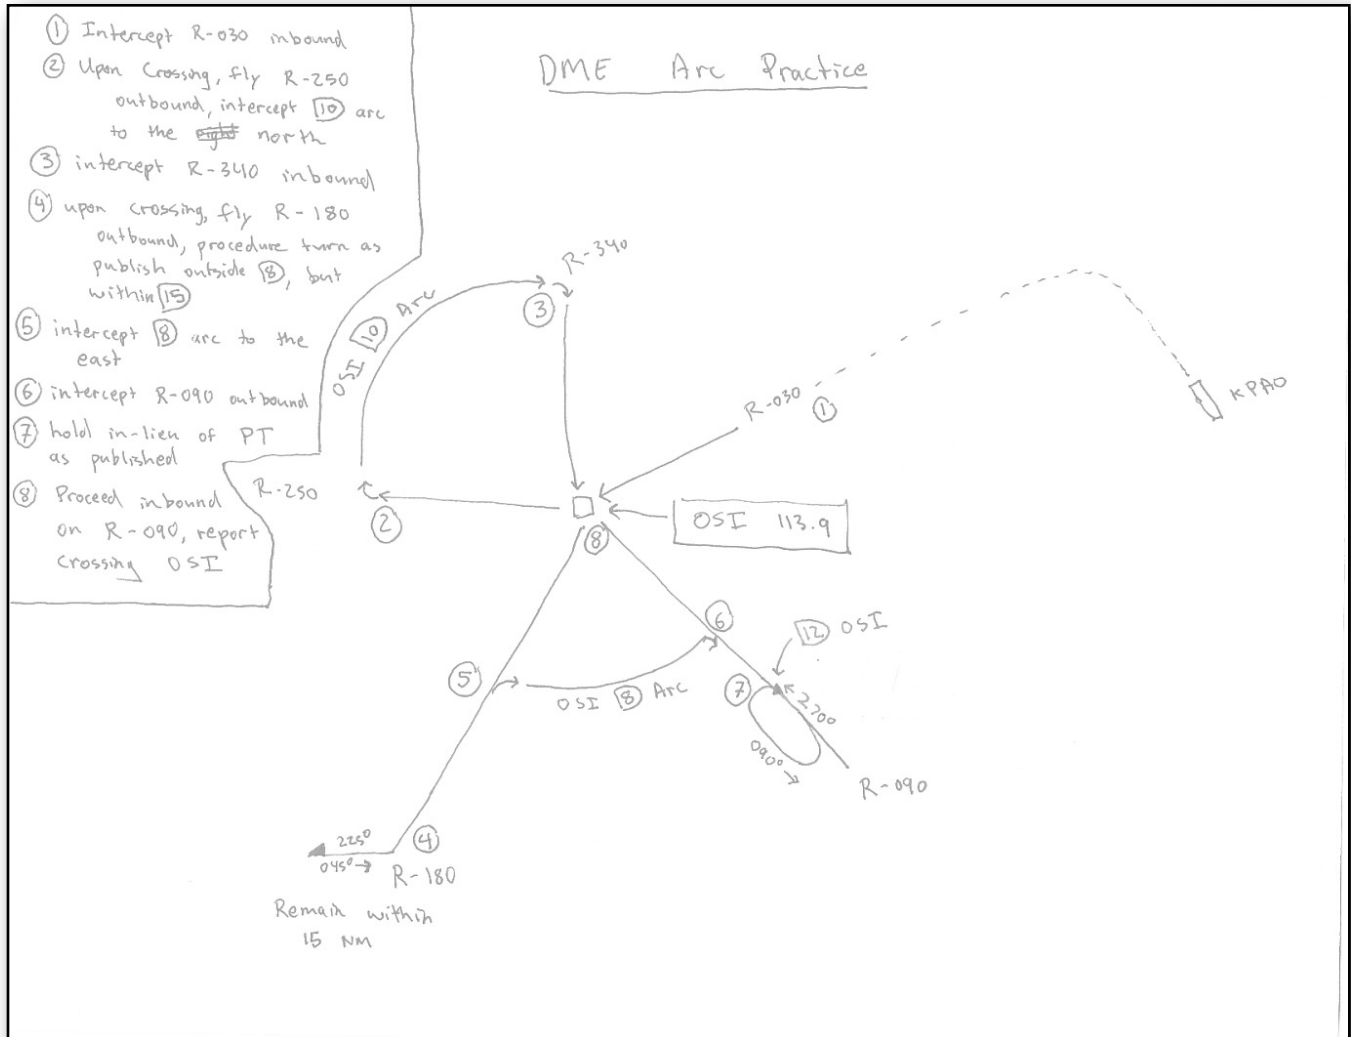 ① Intercept R-030 inbound
② Upon Crossing, fly R-250
outbound, intercept 10 arc
to the right north
③ intercept R-340 inbound
④ upon crossing, fly R-180
outbound, procedure turn as
publish outside 8, but
within 15
⑤ intercept 8 arc to the
east
⑥ intercept R-090 outbound
⑦ hold in-lieu of PT
as published
⑧ Proceed inbound
on R-090, report
crossing OSI
DME Arc Practice
R-340
③
OSI 10 Arc
R-030 ①
KPAO
R-250
②
OSI 113.9
⑧
⑥
12 OSI
⑤
OSI 8 Arc
⑦
270°
090°
R-090
④
225°
045°
R-180
Remain within
15 NM